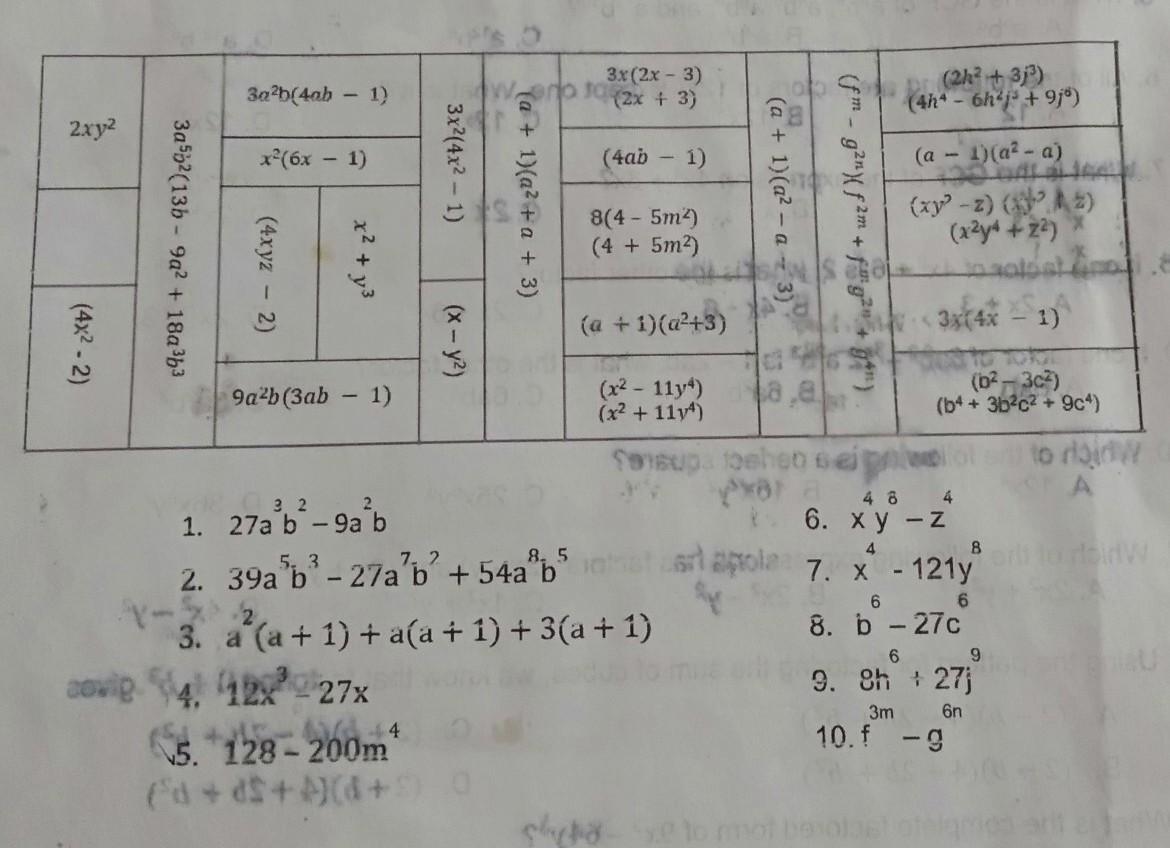 2xy²
(4x² - 2)
3a⁵b²(13b - 9a² + 18a³b³
3a²b(4ab - 1)
x²(6x - 1)
(4xyz - 2)
x² + y³
9a²b(3ab - 1)
3x²(4x² - 1)
(x - y²)
(a + 1)(a² + a + 3)
3x(2x - 3)
(2x + 3)
(4ab - 1)
8(4 - 5m²)
(4 + 5m²)
(a + 1)(a²+3)
(x² - 11y⁴)
(x² + 11y⁴)
(a + 1)(a² - a - 3)
(fᵐ - g²ⁿ)(f²ᵐ + fᵐg²ⁿ + g⁴ⁿ)
(2h² + 3j³)
(4h⁴ - 6h²j³ + 9j⁶)
(a - 1)(a² - a)
(xy² - z) (xy² + z)
(x²y⁴ + z²)
3x(4x - 1)
(b² - 3c²)
(b⁴ + 3b²c² + 9c⁴)
1. 27a³b² – 9a²b
2. 39a⁵b³ – 27a⁷b² + 54a⁸b⁵
3. a²(a + 1) + a(a + 1) + 3(a + 1)
4. 12x³ – 27x
5. 128 – 200m⁴
6. x⁴y⁸ – z⁴
7. x⁴ - 121y⁸
8. b⁶ – 27c⁶
9. 8h⁶ + 27j⁹
10. f³ᵐ – g⁶ⁿ